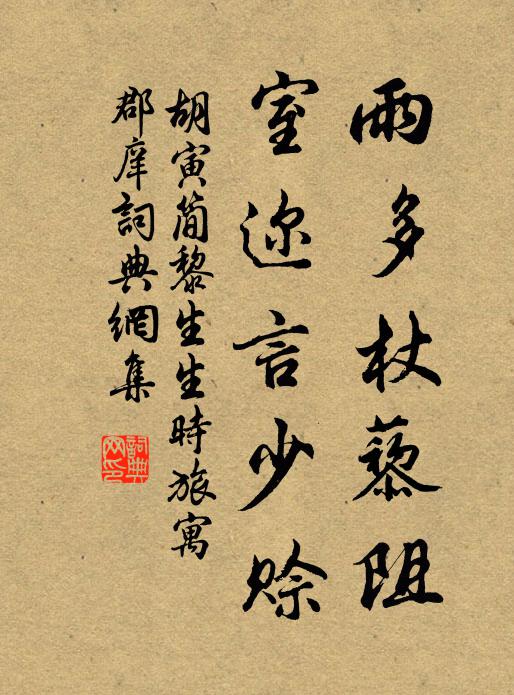 雨多杖藜阻
室迩言少賒
胡寅簡黎生生時旅寓
郡庠詞典網集
詞典
网印